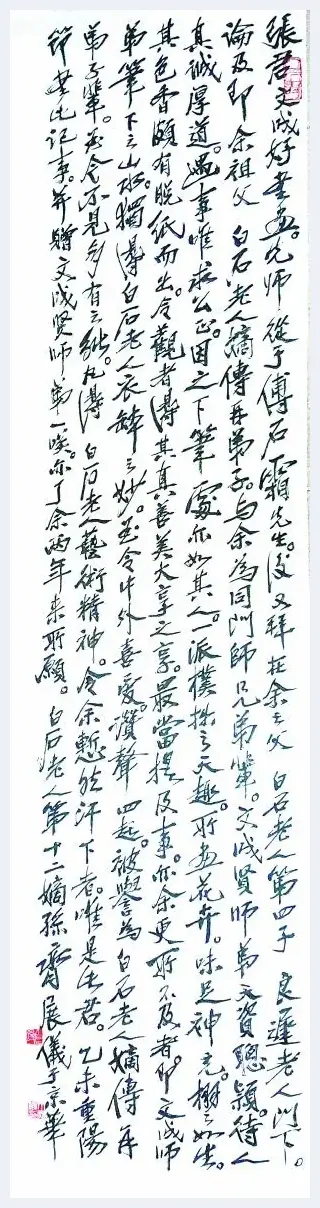 張君文成好書畫。先師從于傅石霜先生。後又拜在余之父 白石老人第四子 良遲老人門下。
論及即余祖父 白石老人嫡傳再弟子。与余為同門師兄弟輩。文成賢師弟天資聰穎。待人
真誠厚道。遇事唯求公正。因之下筆處亦如其人。一派樸拙之天趣。所畫花卉。味足神充。栩栩如生。
其色香頗有脫紙而出。令觀者得其真善美大享之享。最當提及事。亦余更所不及者。即文成師
弟筆下之山水。獨得白石老人衣缽之妙。至令中外喜愛。讚聲四起。被譽為白石老人嫡傳再
弟子輩。至今不見多有之能。凡得 白石老人藝術精神。令余慙然汗下者。唯是此君。乙未重陽
節書此記事。并贈文成賢師弟一唉。亦了余兩年来所願。白石老人第十二嫡孫齊展儀于京華